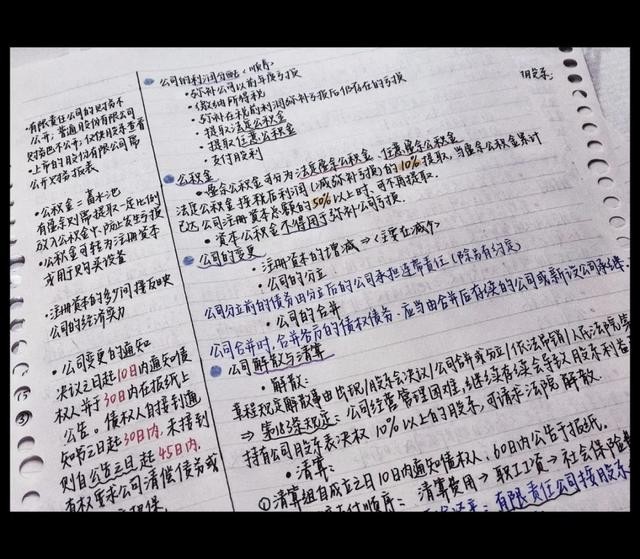 有限责任公司的财务不
公开;普通股份有限公司
财务也不公开;仅供股东查看
上市的股份有限公司需
公开财务报表
• 公积金=蓄水池
有盈余则需提取一定比例
放入公积金中,防止发生亏损
• 公积金可转为注册资本
或用于购买设备
• 注册资本的多少间接反映
公司的经济实力
• 公司变更的通知
决议之日起10日内通知债
权人并于30日内在报纸上
公告。债权人自接到通
知书之日起30日内,未接到
则自公告之日起45日内,
有权要求公司清偿债务或
担保
公司的利润分配(顺序)
• 弥补公司以前年度亏损
• 缴纳所得税
• 弥补在税前利润弥补亏损后仍存在的亏损
• 提取法定公积金
• 提取任意公积金
• 支付股利
股东:
公积金
• 盈余公积金可分为法定盈余公积金、任意盈余公积金
法定公积金按税后利润(减弥补亏损)的10%提取,当盈余公积金累计
已达公司注册资本总额的50%以上时,可不再提取.
• 资本公积金不得用于弥补公司亏损.
公司的变更
• 注册资本的增减⇒(主要在减少)
• 公司的分立
公司分立前的债务由分立后的公司承担连带责任(除另有约定)
• 公司的合并
公司合并时,合并各方的债权债务,应当由合并后存续的公司或新设公司承继.
公司解散与清算
• 解散:
章程规定解散事由出现/股东会决议/公司合并或分立/依法吊销/人依法院
⇒ 第182条规定:公司经营管理困难,继续存续会导致股东利益
持有公司股东表决权10%以上的股东,可请求法院解散.
• 清算:
①清算组自成立之日10日内通知债权人,60日内公告于报纸.
支付顺序: 清算费用→职工工资→社会保险
有限责任公司按股东